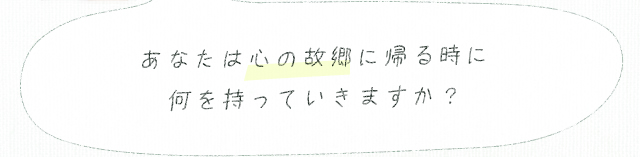 あなたは心の故郷に帰る時に
何を持っていきますか？